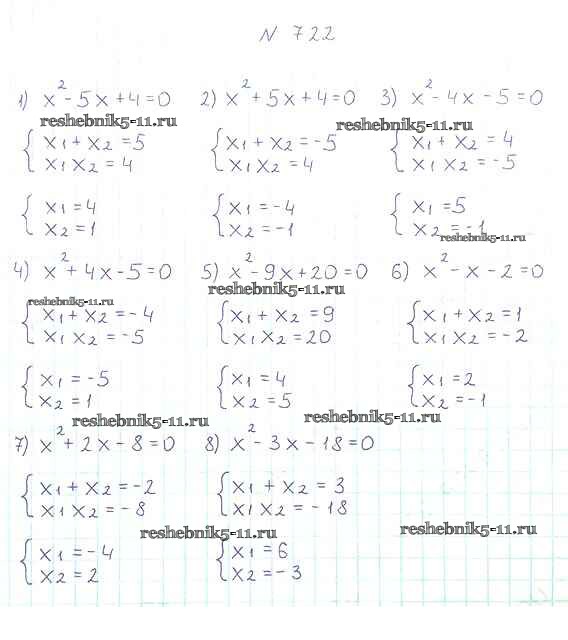 N 722
1) x² - 5x + 4 = 0 2) x² + 5x + 4 = 0 3) x² - 4x - 5 = 0
reshebnik5-11.ru reshebnik5-11.ru
{ x1 + x2 = 5 { x1 + x2 = -5 { x1 + x2 = 4
x1 x2 = 4 x1 x2 = 4 x1 x2 = -5
{ x1 = 4 { x1 = -4 { x1 = 5
x2 = 1 x2 = -1 x2 = -1
reshebnik5-11.ru
4) x² + 4x - 5 = 0 5) x² - 9x + 20 = 0 6) x² - x - 2 = 0
reshebnik5-11.ru reshebnik5-11.ru
{ x1 + x2 = -4 { x1 + x2 = 9 { x1 + x2 = 1
x1 x2 = -5 x1 x2 = 20 x1 x2 = -2
{ x1 = -5 { x1 = 4 { x1 = 2
x2 = 1 x2 = 5 x2 = -1
reshebnik5-11.ru reshebnik5-11.ru
7) x² + 2x - 8 = 0 8) x² - 3x - 18 = 0
{ x1 + x2 = -2 { x1 + x2 = 3
x1 x2 = -8 x1 x2 = -18
reshebnik5-11.ru reshebnik5-11.ru
{ x1 = -4 { x1 = 6
x2 = 2 x2 = -3